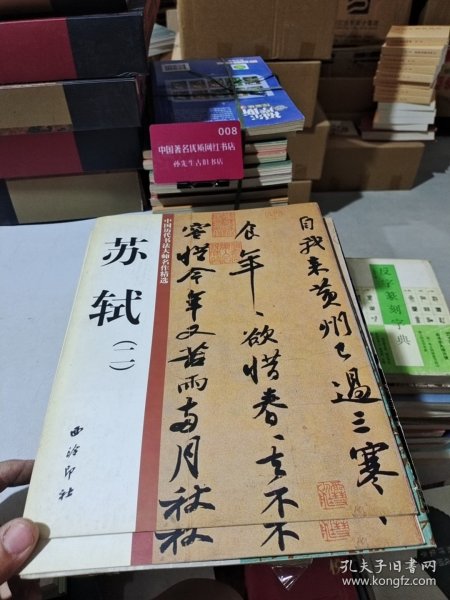 008
中国著名优质网红书店
孙先生古旧书店
中国历代书法大师名作精选
苏轼(二)
西泠印社
自我来黄州已過三寒
食年〻欲惜春〻去不
容惜今年又苦雨兩月秋
反字篆刻字典
孔夫子旧书网
www.kongfz.com